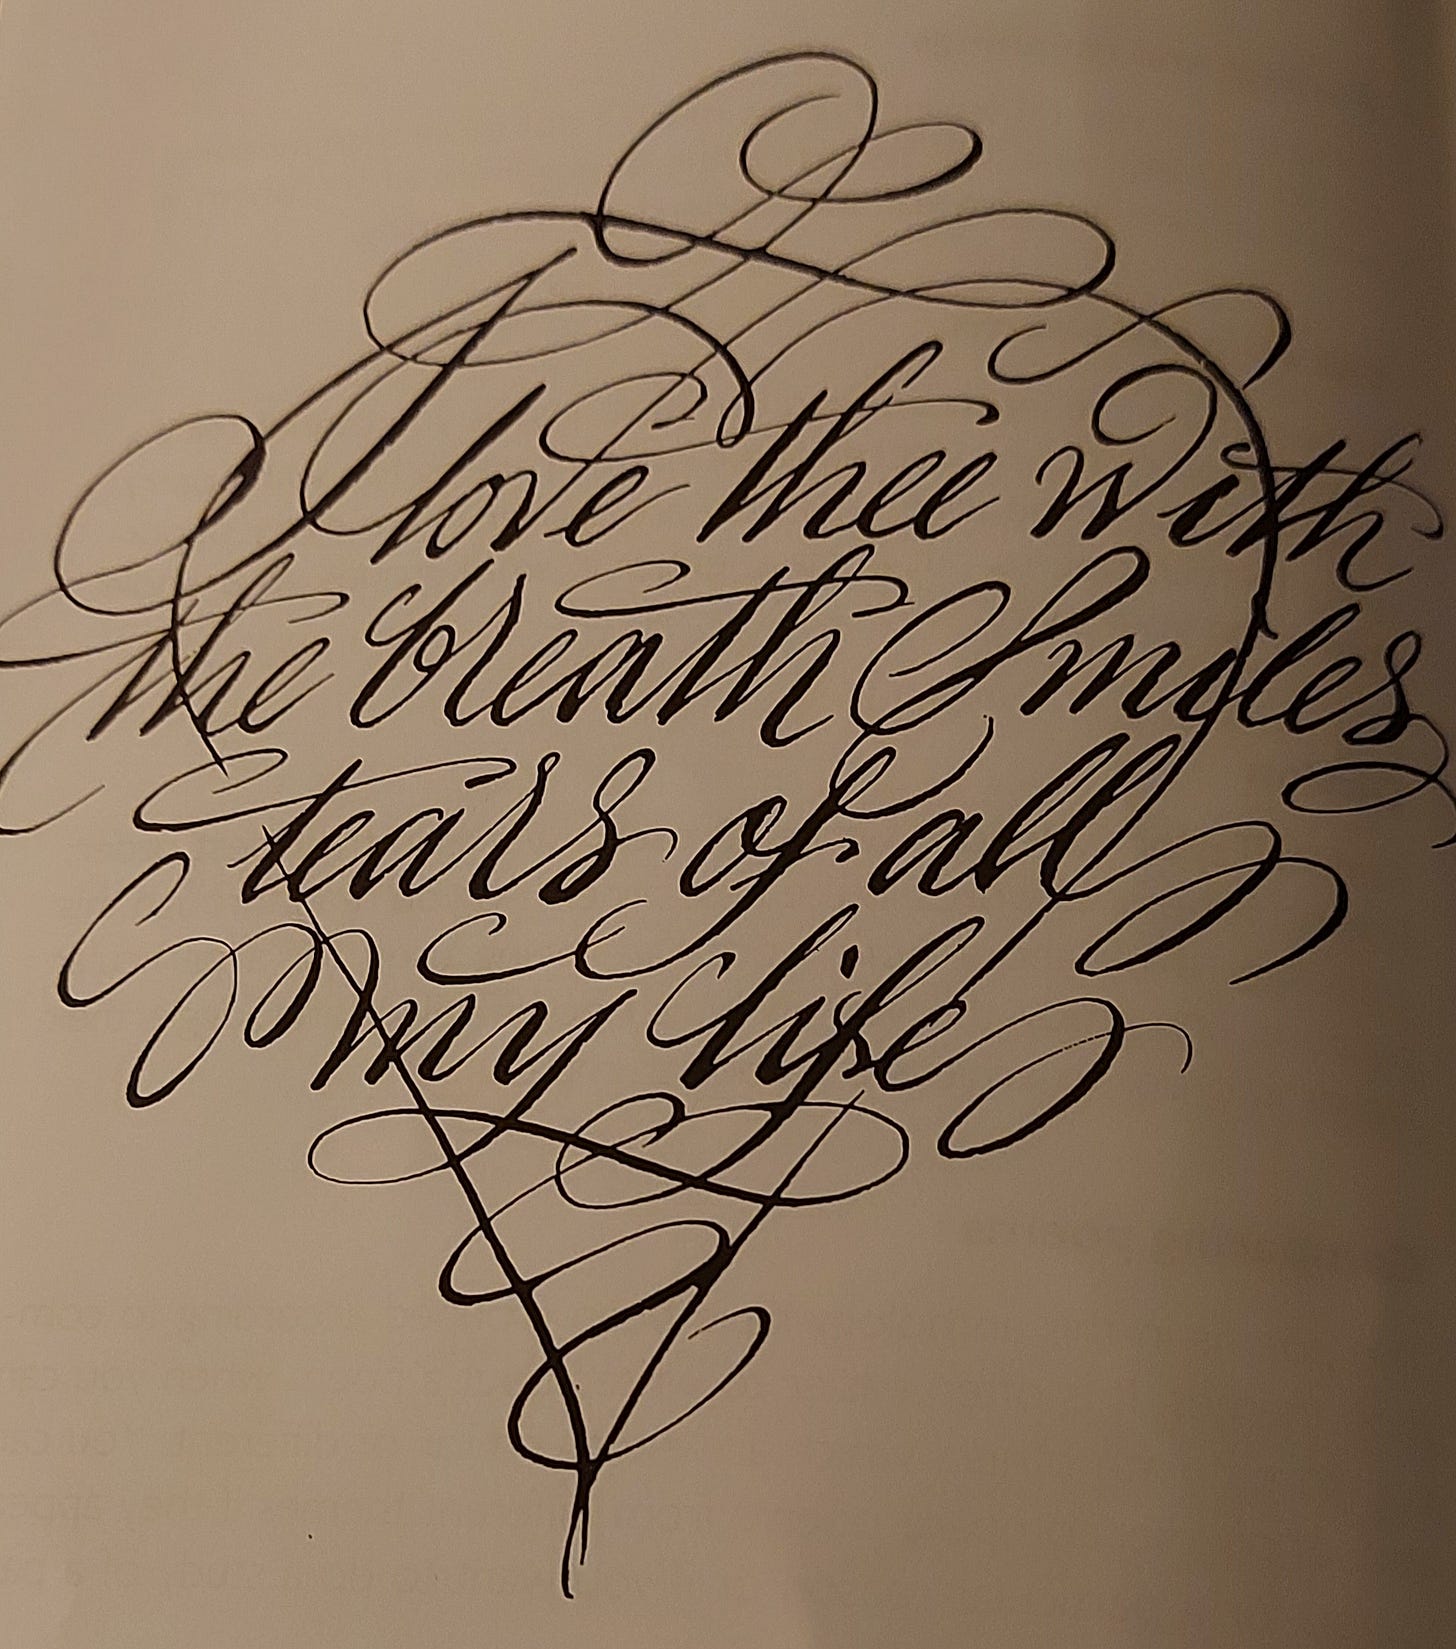 I love thee with
the breath Smiles
tears of all
my life